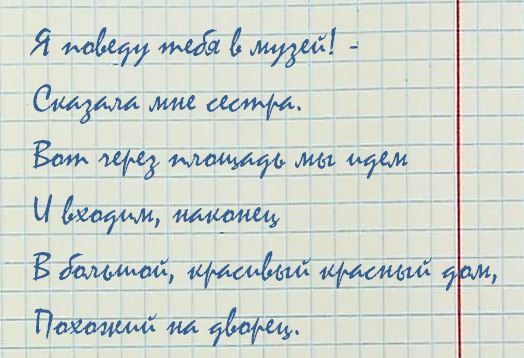 Я поведу тебя в музей! -
Сказала мне сестра.
Вот через площадь мы идем
И входим, наконец
В большой, красивый красный дом,
Похожий на дворец.